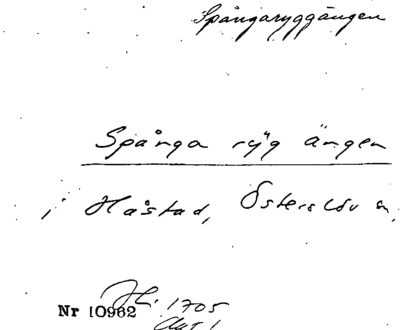 Spångaryggängen
Spånga ryg ängen
i Håstad, Österslöv sn.
Nr 10962 1705